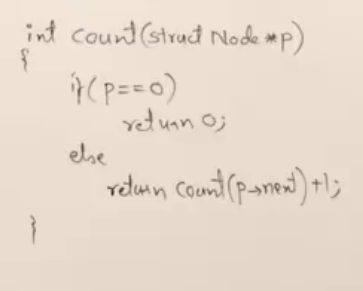 int count(struct Node *p)
{
if(p==0)
return 0;
else
return count(p→next)+1;
}